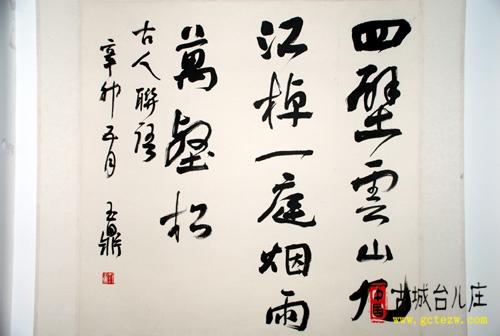 四壁雲山九
江棹一庭烟雨
萬壑松
古人聯語
辛卯五月 玉鼎
中国 古城台儿庄
www.gctezw.com